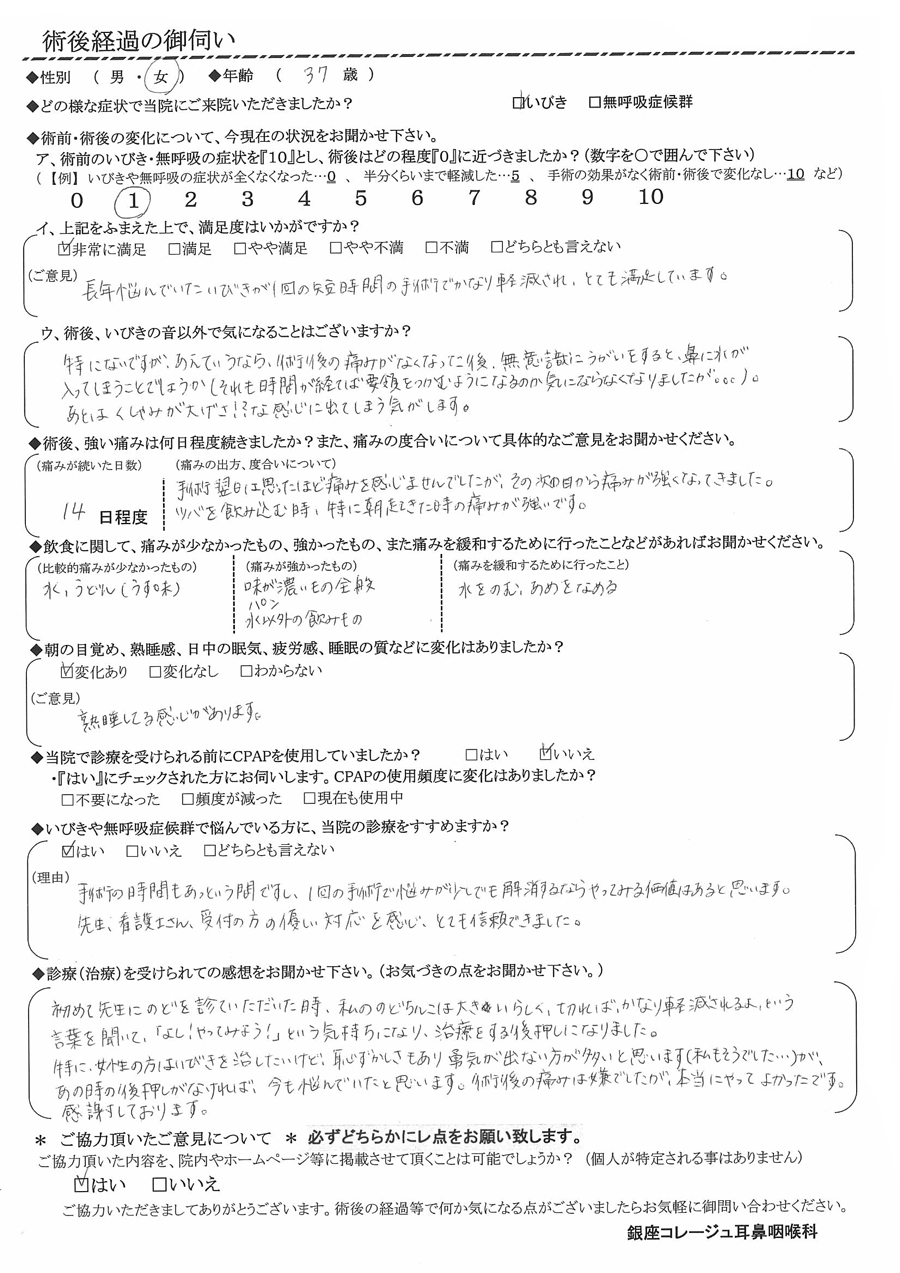 術後経過の御伺い
◆性別 ( 男 ・ 女 ) ◆年齢 ( 37 歳 )
◆どの様な症状で当院にご来院いただきましたか? ☑いびき □無呼吸症候群
◆術前・術後の変化について、今現在の状況をお聞かせ下さい。
ア、術前のいびき・無呼吸の症状を『10』とし、術後はどの程度『0』に近づきましたか?(数字を○で囲んで下さい)
( 【例】 いびきや無呼吸の症状が全くなくなった…0 、 半分くらいまで軽減した…5 、 手術の効果がなく術前・術後で変化なし…10 など)
0 1 2 3 4 5 6 7 8 9 10
イ、上記をふまえた上で、満足度はいかがですか?
☑非常に満足 □満足 □やや満足 □やや不満 □不満 □どちらとも言えない
(ご意見)
長年悩んでいたいびきが1回の短時間の手術でかなり軽減され、とても満足しています。
ウ、術後、いびきの音以外で気になることはございますか?
特にないですが、あんていうなら、術後の痛みがなくなった後、無意識にうがいをすると、鼻に水が
入ってしまうことでしょうか(それも時間が経てば要領をつかむようになるのか気にならなくなりましたが。。。)。
あとは くしゃみが大げさ!?な感じに出てしまう気がします。
◆術後、強い痛みは何日程度続きましたか?また、痛みの度合いについて具体的なご意見をお聞かせください。
(痛みが続いた日数) (痛みの出方、度合いについて)
手術翌日は思ったほど痛みを感じませんでしたが、その次の日から痛みが強くなってきました。
14 日程度 ツバを飲み込む時、特に朝起きた時の痛みが強いです。
◆飲食に関して、痛みが少なかったもの、強かったもの、また痛みを緩和するために行ったことなどがあればお聞かせください。
(比較的痛みが少なかったもの) (痛みが強かったもの) (痛みを緩和するために行ったこと)
水、うどん(うす味) 味が濃いもの全般 水をのむ、あめをなめる
パン
水以外の飲みもの
◆朝の目覚め、熟睡感、日中の眠気、疲労感、睡眠の質などに変化はありましたか?
☑変化あり □変化なし □わからない
(ご意見)
熟睡してる感じがあります。
◆当院で診療を受けられる前にCPAPを使用していましたか? □はい ☑いいえ
・『はい』にチェックされた方にお伺いします。CPAPの使用頻度に変化はありましたか?
□不要になった □頻度が減った □現在も使用中
◆いびきや無呼吸症候群で悩んでいる方に、当院の診療をすすめますか?
☑はい □いいえ □どちらとも言えない
(理由)
手術の時間もあっという間ですし、1回の手術で悩みが少しでも解消するならやってみる価値はあると思います。
先生、看護士さん、受付の方の優しい対応を感じ、とても信頼できました。
◆診療(治療)を受けられての感想をお聞かせ下さい。(お気づきの点をお聞かせ下さい。)
初めて先生にのどを診ていただいた時、私ののどちんこは大きいらしく、切れば、かなり軽減されるよ、という
言葉を聞いて、「よし!やってみよう!」という気持ちになり、治療をする後押しになりました。
特に、女性の方はいびきを治したいけど、恥ずかしさもあり勇気が出ない方が多いと思います(私もそうでした…)が、
あの時の後押しがなければ、今も悩んでいたと思います。術後の痛みは嫌でしたが、本当にやってよかったです。
感謝しております。
＊ ご協力頂いたご意見について ＊ 必ずどちらかにレ点をお願い致します。
ご協力頂いた内容を、院内やホームページ等に掲載させて頂くことは可能でしょうか? (個人が特定される事はありません)
☑はい □いいえ
ご協力いただきましてありがとうございます。術後の経過等で何か気になる点がございましたらお気軽に御問い合わせください。
銀座コレージュ耳鼻咽喉科